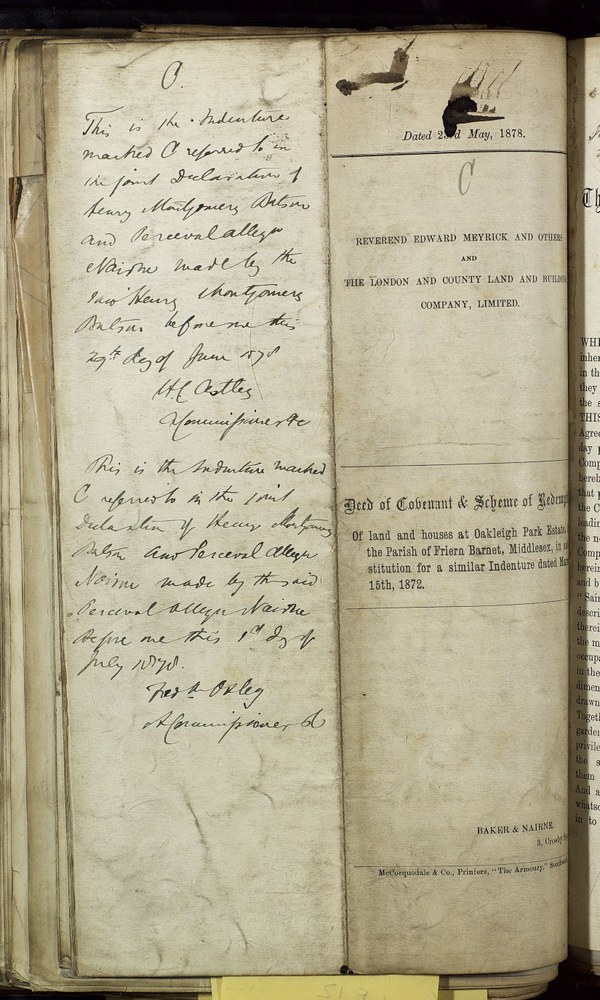 C.
This is the Indenture
marked C referred to in
the joint Declaration of
Henry Montgomery Batson
and Perceval Alleyn
Nairne made by the
said Henry Montgomery
Batson before me this
29th day of June 1878
H C Astley
A Commissioner &c
This is the Indenture marked
C referred to in the joint
Declaration of Henry Montgomery
Batson and Perceval Alleyn
Nairne made by the said
Perceval Alleyn Nairne
before me this 1st day of
July 1878.
Fredk Oxley
A Commissioner &c
Dated 23rd May, 1878.
C
REVEREND EDWARD MEYRICK AND OTHERS
AND
THE LONDON AND COUNTY LAND AND BUILDIN
COMPANY, LIMITED.
Deed of Covenant & Scheme of Redemp
Of land and houses at Oakleigh Park Estate,
the Parish of Friern Barnet, Middlesex, in su
stitution for a similar Indenture dated Mar
15th, 1872.
BAKER & NAIRNE,
3, Crosby
McCorquodale & Co., Printers, "The Armoury," Southw